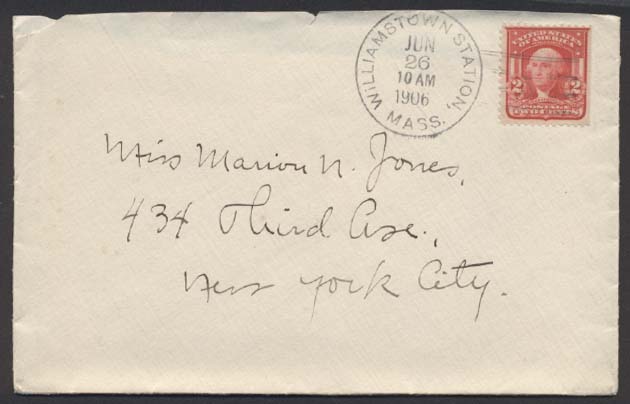 WILLIAMSTOWN STATION, MASS.
JUN
26
10 AM
1906
UNITED STATES
OF AMERICA
2 2
POSTAGE
TWO CENTS
Miss Marion N. Jones,
434 Third Ave.,
New York City.